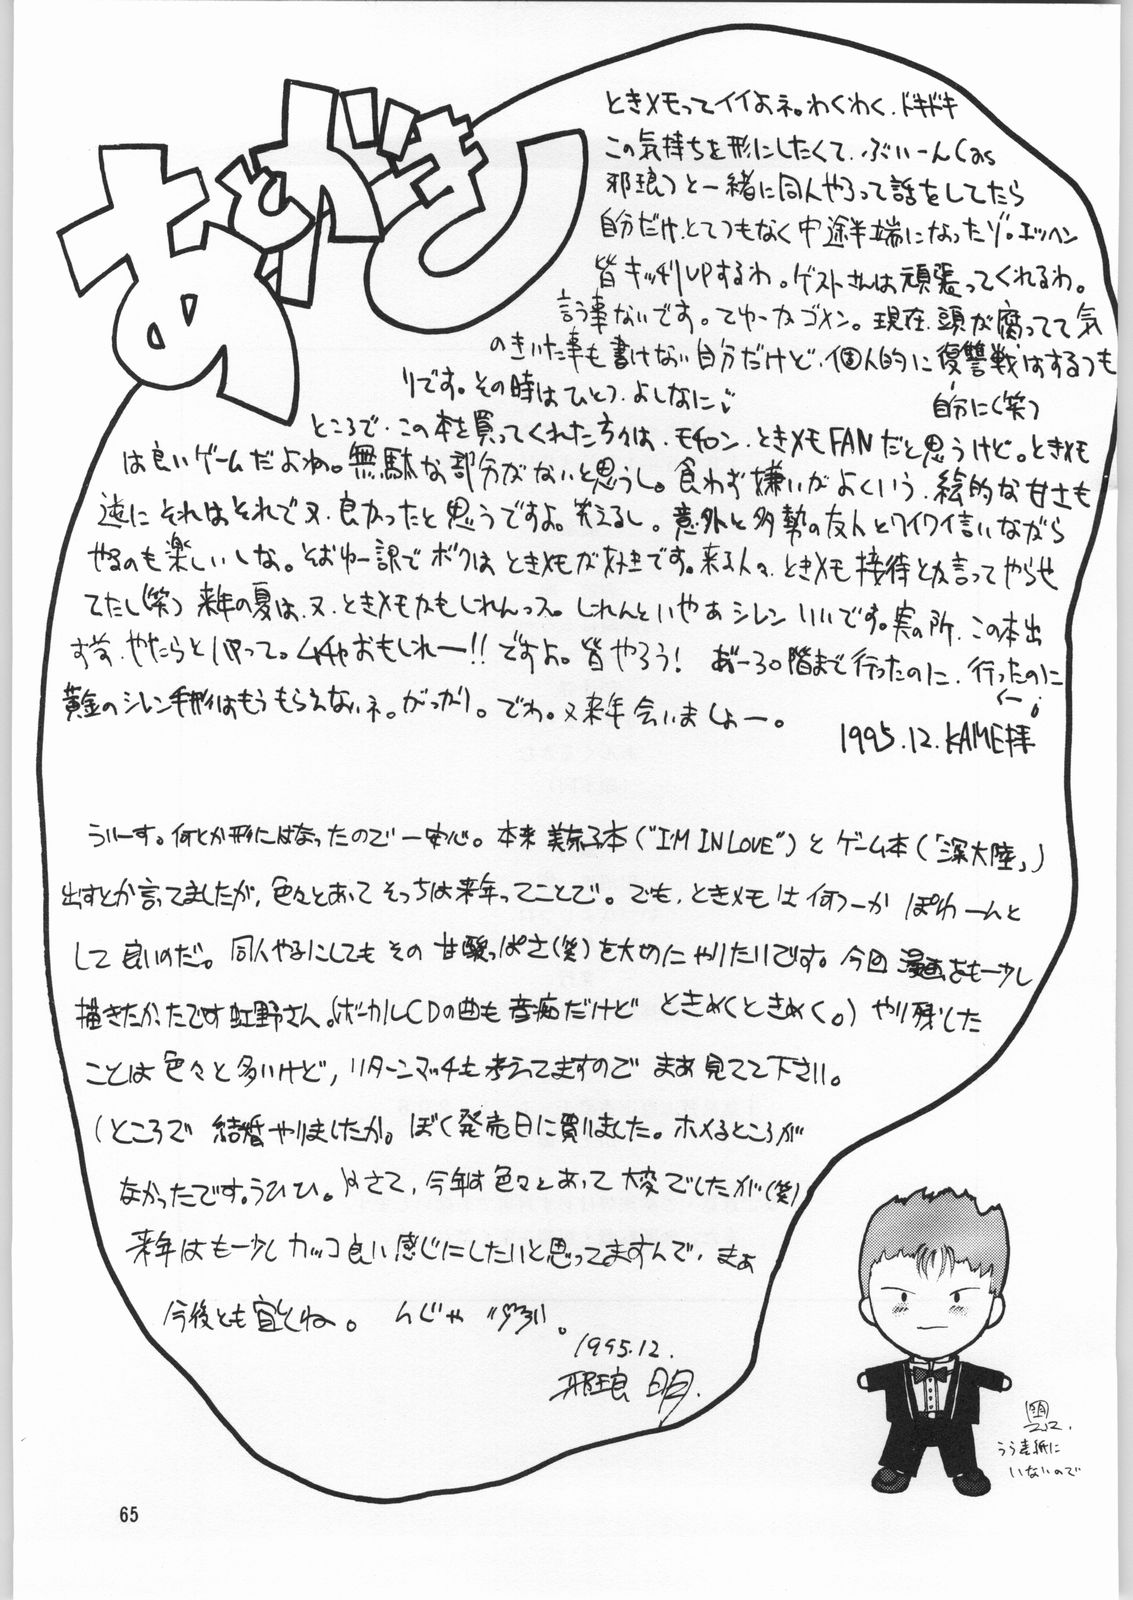 あとがき
ときメモってイイよネ。わくわく、ドキドキ
この気持ちを形にしたくて、ぶぃーん(as
邪琅)と一緒に同人やろって話をしてたら
自分だけ、とてつもなく中途半端になったゾ。エッヘン
皆キッチリUPするわ。ゲストさんは頑張ってくれるわ。
言う事ないです。てゆーかゴメン。現在、頭が腐ってて気
のきいた事も書けない自分だけど、個人的に復讐戦はするつも
自分に(笑)
りです。その時はひとつ、よしなに
ところで、この本を買ってくれた方々は、モチロン、ときメモFANだと思うけど。ときメモ
は良いゲームだよね。無駄な部分がないと思うし。食わず嫌いがよくいう、絵的な甘さも
逆にそれはそれで又、良かったと思うですよ。笑えるし。意外と多勢の友人とワイワイ言いながら
やるのも楽しいしな。そおゆー訳でボクはときメモが好きです。来る人々、ときメモ接待とか言ってやらせ
てたし(笑) 来年の夏は、又、ときメモかもしれんっス。しれんといやあシレンいいです。実の所、この本出
ず前、やたらとハマって。ムチャおもしれー!!ですよ。皆やろう! あ゛ーっ30階まで行ったのに、行ったのに
黄金のシレン手形はもうもらえないネ。がっかり。でわ。又来年会いましょー。
1995.12.KAME拝
ういーす。何とか形にはなったので一安心。本来 美奈子本("I'M IN LOVE")とゲーム本(「深大陸」)
出すとか言ってましたが、色々とあってそっちは来年ってことで。でも、ときメモは何つーか ぽわーんと
して良いのだ。同人やるにしてもその甘酸っぱさ(笑)を大めにやりたいです。今回漫画をもー少し
描きたかったです虹野さん。(ボーカルCDの曲も音痴だけど ときめくときめく。) やり残した
ことは色々と多いけど,リターンマッチも考えてますので まあ見てて下さい。
(ところで 結婚やりましたか。ぼく発売日に買いました。ホメるところが
なかったです。うひひ。)さて、今年は色々とあって大変でしたが(笑)
来年はもー少しカッコ良い感じにしたいと思ってますんで、まあ
今後とも宜しくね。 んじゃ
1995.12.
邪琅 明.
うら表紙に
いないので
65